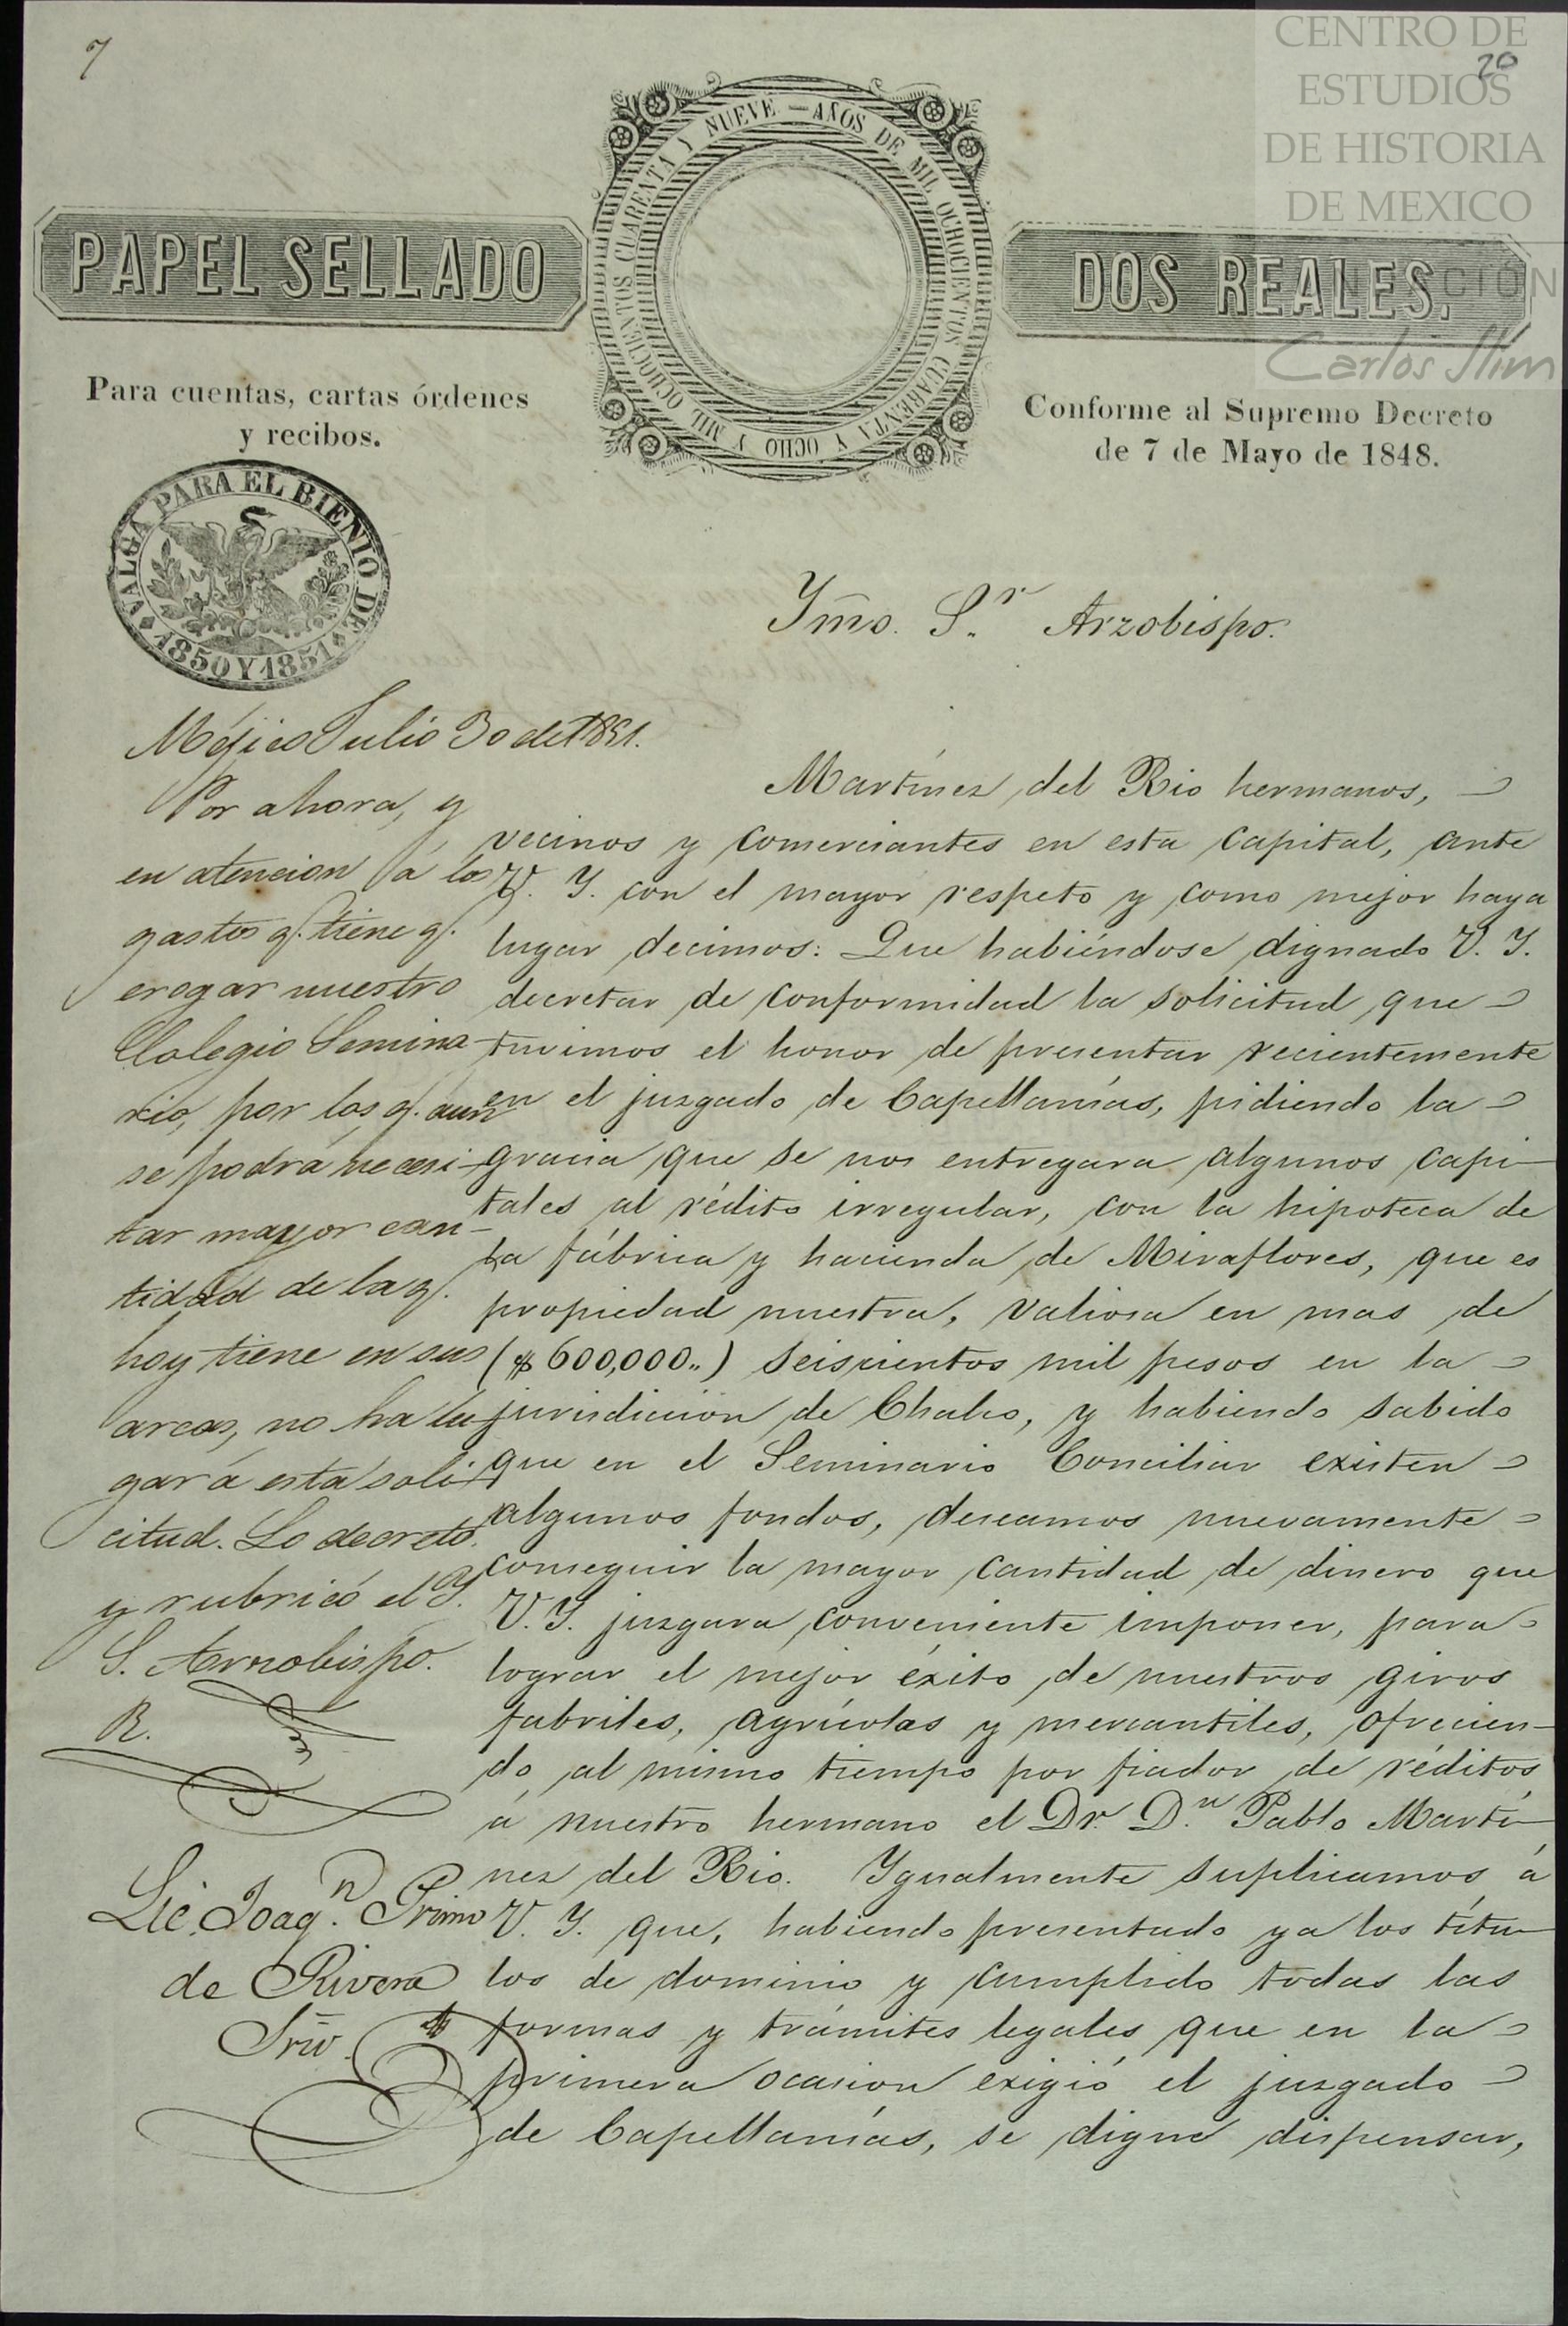 7
20
CENTRO DE
ESTUDIOS
DE HISTORIA
DE MEXICO
Carlos Slim
PAPEL SELLADO
AÑOS DE MIL OCHOCIENTOS CUARENTA Y OCHO Y MIL OCHOCIENTOS CUARENTA Y NUEVE.
DOS REALES.
Para cuentas, cartas órdenes
y recibos.
Conforme al Supremo Decreto
de 7 de Mayo de 1848.
VALGA PARA EL BIENIO DE
1850 Y 1851
Ymo. Sr. Arzobispo.
Méjico Julio 30 de 1851.
Por ahora, y
en atencion á los
gastos q. tiene q.
erogar nuestro
Colegio Semina-
rio, por los q. aun
se podrá necesi-
tar mayor can-
tidad de la q.
hoy tiene en sus
arcas, no ha lu-
gar á esta soli-
citud. Lo decretó
y rubricó el Y.
S. Arzobispo.
R.
Lic. Joaqn. Primo
de Rivera
Srio.
Martínez del Rio hermanos,
vecinos y comerciantes en esta capital, ante
V. Y. con el mayor respeto y como mejor haya
lugar decimos: Que habiéndose dignado V. Y.
decretar de conformidad la solicitud que
tuvimos el honor de presentar recientemente
en el juzgado de Capellanías, pidiendo la
gracia que se nos entregara algunos capi-
tales al rédito irregular, con la hipoteca de
la fábrica y hacienda de Miraflores, que es
propiedad nuestra, valiosa en mas de
($600,000..) seiscientos mil pesos en la
jurisdiccion de Chalco, y habiendo sabido
que en el Seminario Conciliar existen
algunos fondos, deseamos nuevamente
conseguir la mayor cantidad de dinero que
V. Y. juzgara conveniente imponer, para
lograr el mejor éxito de nuestros giros
fabriles, agrícolas y mercantiles, ofrecien-
do al mismo tiempo por fiador de réditos
á nuestro hermano el Dr. Dn. Pablo Martí-
nez del Rio. Ygualmente suplicamos á
V. Y. que, habiendo presentado ya los títu-
los de dominio y cumplido todas las
formas y trámites legales que en la
primera ocasion exigió el juzgado
de Capellanías, se digne dispensar,